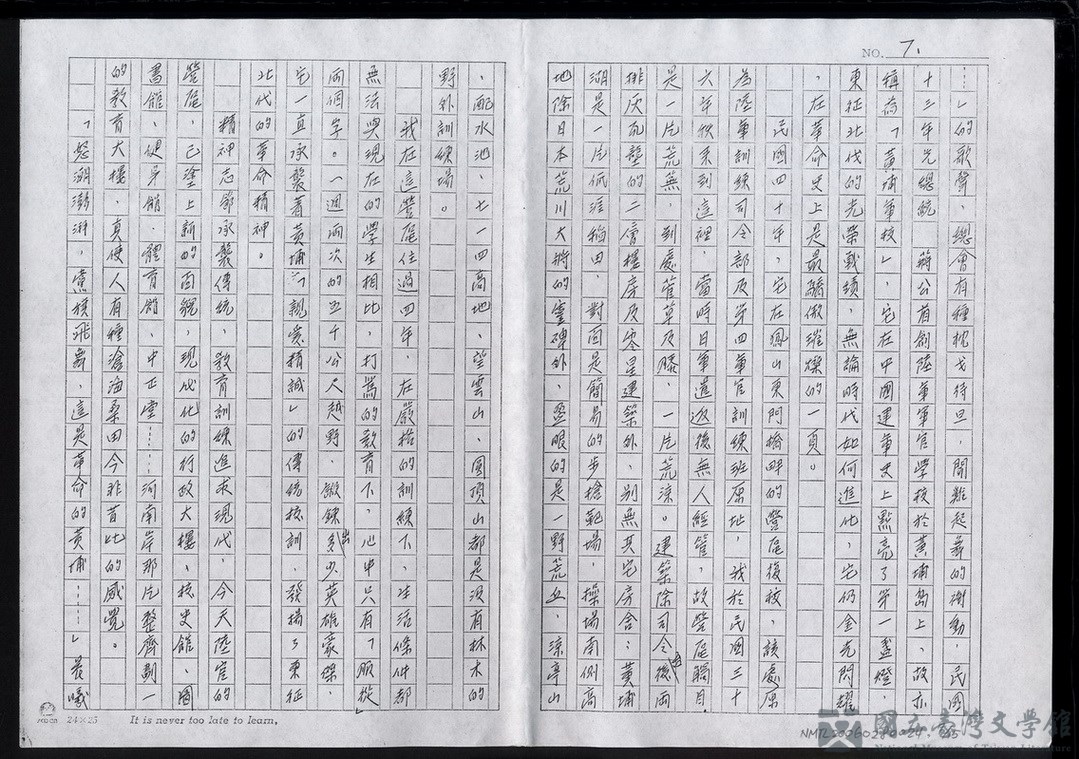 NO. 7.
……」的歌聲，總會有種枕戈待旦，聞雞起舞的衝動，民國
十三年先總統 蔣公首創陸軍軍官學校於黃埔島上，故亦
稱為「黃埔軍校」，它在中國建軍史上點亮了第一盞燈，
東征北伐的光榮戰績，無論時代如何進化，它仍金光閃耀
，在革命史上是最驕傲璀燦的一頁。
民國四十年，它在鳳山東門橋畔的營區後校，該處原
為陸軍訓練司令部及第四軍官訓練班原址，我於民國三十
六年秋來到這裡，當時日軍遣返後無人經管，故營區觸目
是一片荒蕪，到處菅草及膝，一片荒涼。建築除司令後面兩
排灰瓦壁的二層樓房及零星建築外，別無其它房舍；黃埔
湖是一片低漥稻田，對面是簡易的步槍靶場，操場南側高
地除日本荒川大將的靈碑外，盈眼的是一野荒丘，涼亭山
、配水池、七一四高地、望雲山、圓頂山都是沒有林木的
野外訓練場。
我在這營區住過四年，在嚴格的訓練下，生活條件都
無法與現在的學生相比，打罵的教育下，心中只有「服從」
兩個字。一週兩次的五千公尺越野，鍛鍊出多少英雄豪傑，
它一直承襲著黃埔「親愛精誠」的傳統校訓，發揚了東征
北伐的革命精神。
精神志節承襲傳統，教育訓練進求現代，今天陸官的
營區，已塗上新的面貌，現代化的行政大樓、校史館、圖
書館、健身館、體育館、中正堂……河南岸那片整齊劃一
的教育大樓，真使人有種滄海桑田今非昔比的感覺。
「怒潮澎湃，黨旗飛舞，這是革命的黃埔……」晨曦
24×25 It is never too late to learn.
NMTL20060290024
國立臺灣文學館
National Museum of Taiwan Literature